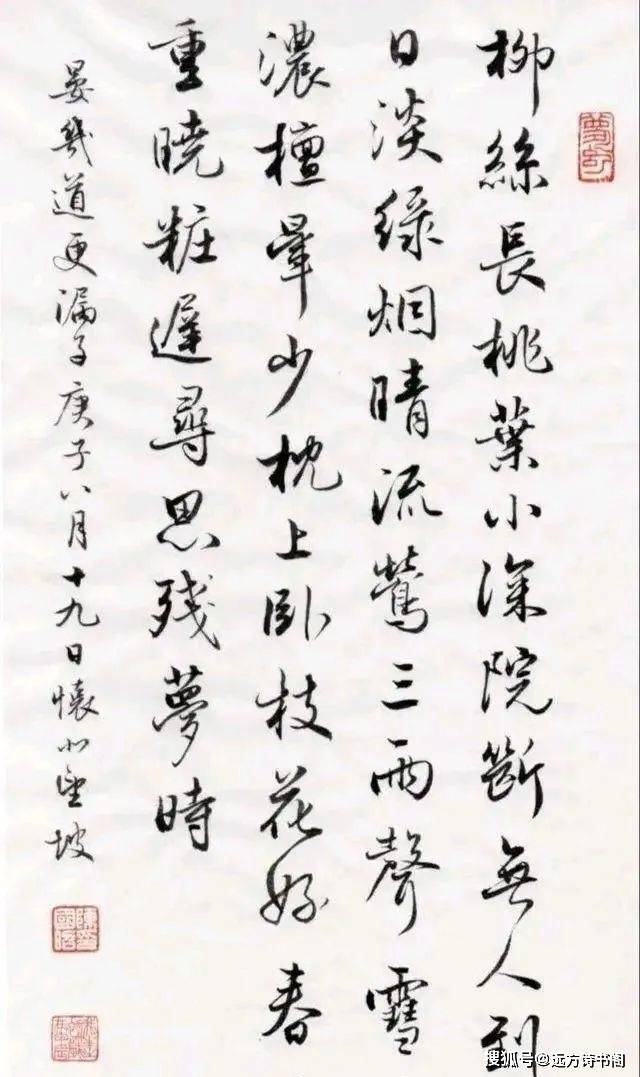 柳絲長桃葉小深院斷無人到
日淡緑烟晴流鶯三兩聲雪
濃檀暈少枕上臥枝花好春
重曉粧遲尋思殘夢時
晏幾道更漏子庚子八月十九日懷坡
搜狐号@远方诗书阁